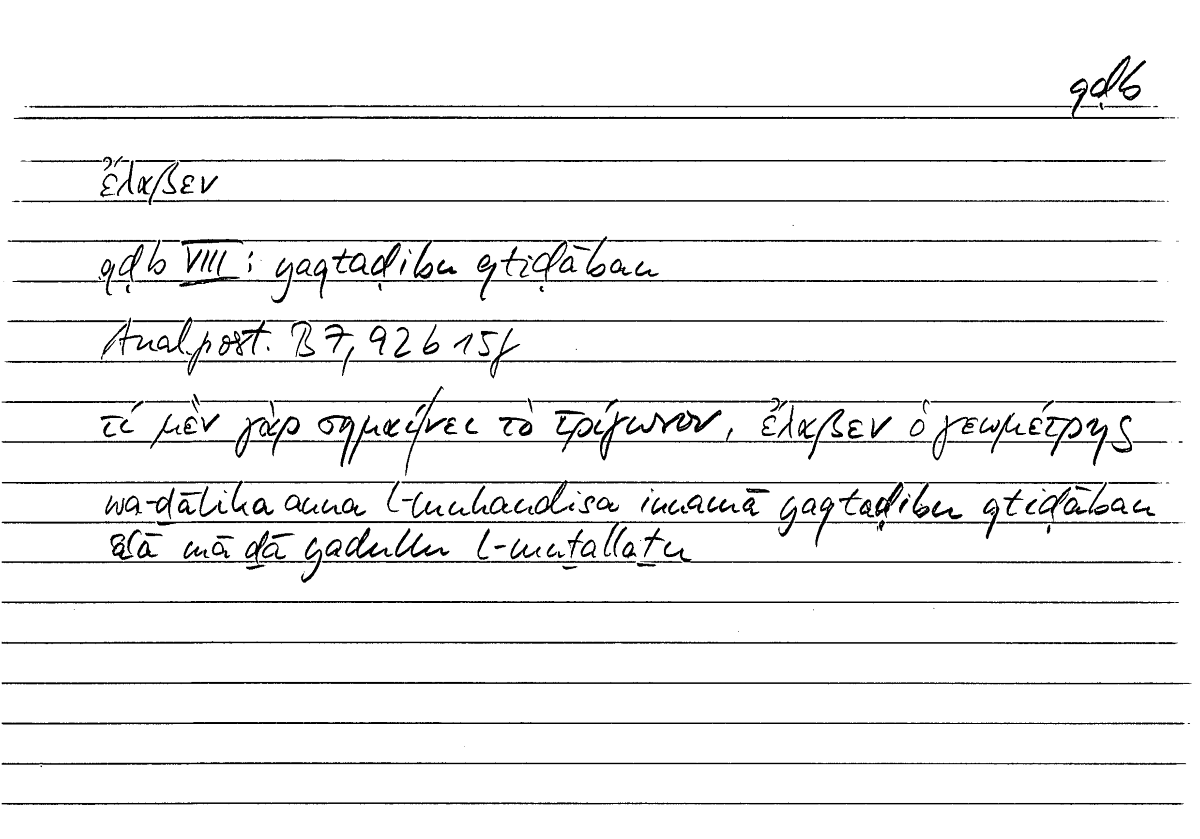 qḍb
ἔλαβεν
qḍb VIII: yaqtaḍibu qtiḍāban
Anal.post. B7, 92b15f
τί μὲν γὰρ σημαίνει τὸ τρίγωνον, ἔλαβεν ὁ γεωμέτρης
wa-ḏālika anna l-muhandisa innamā yaqtaḍibu qtiḍāban
ʿalā mā ḏā yadullu l-muṯallaṯu